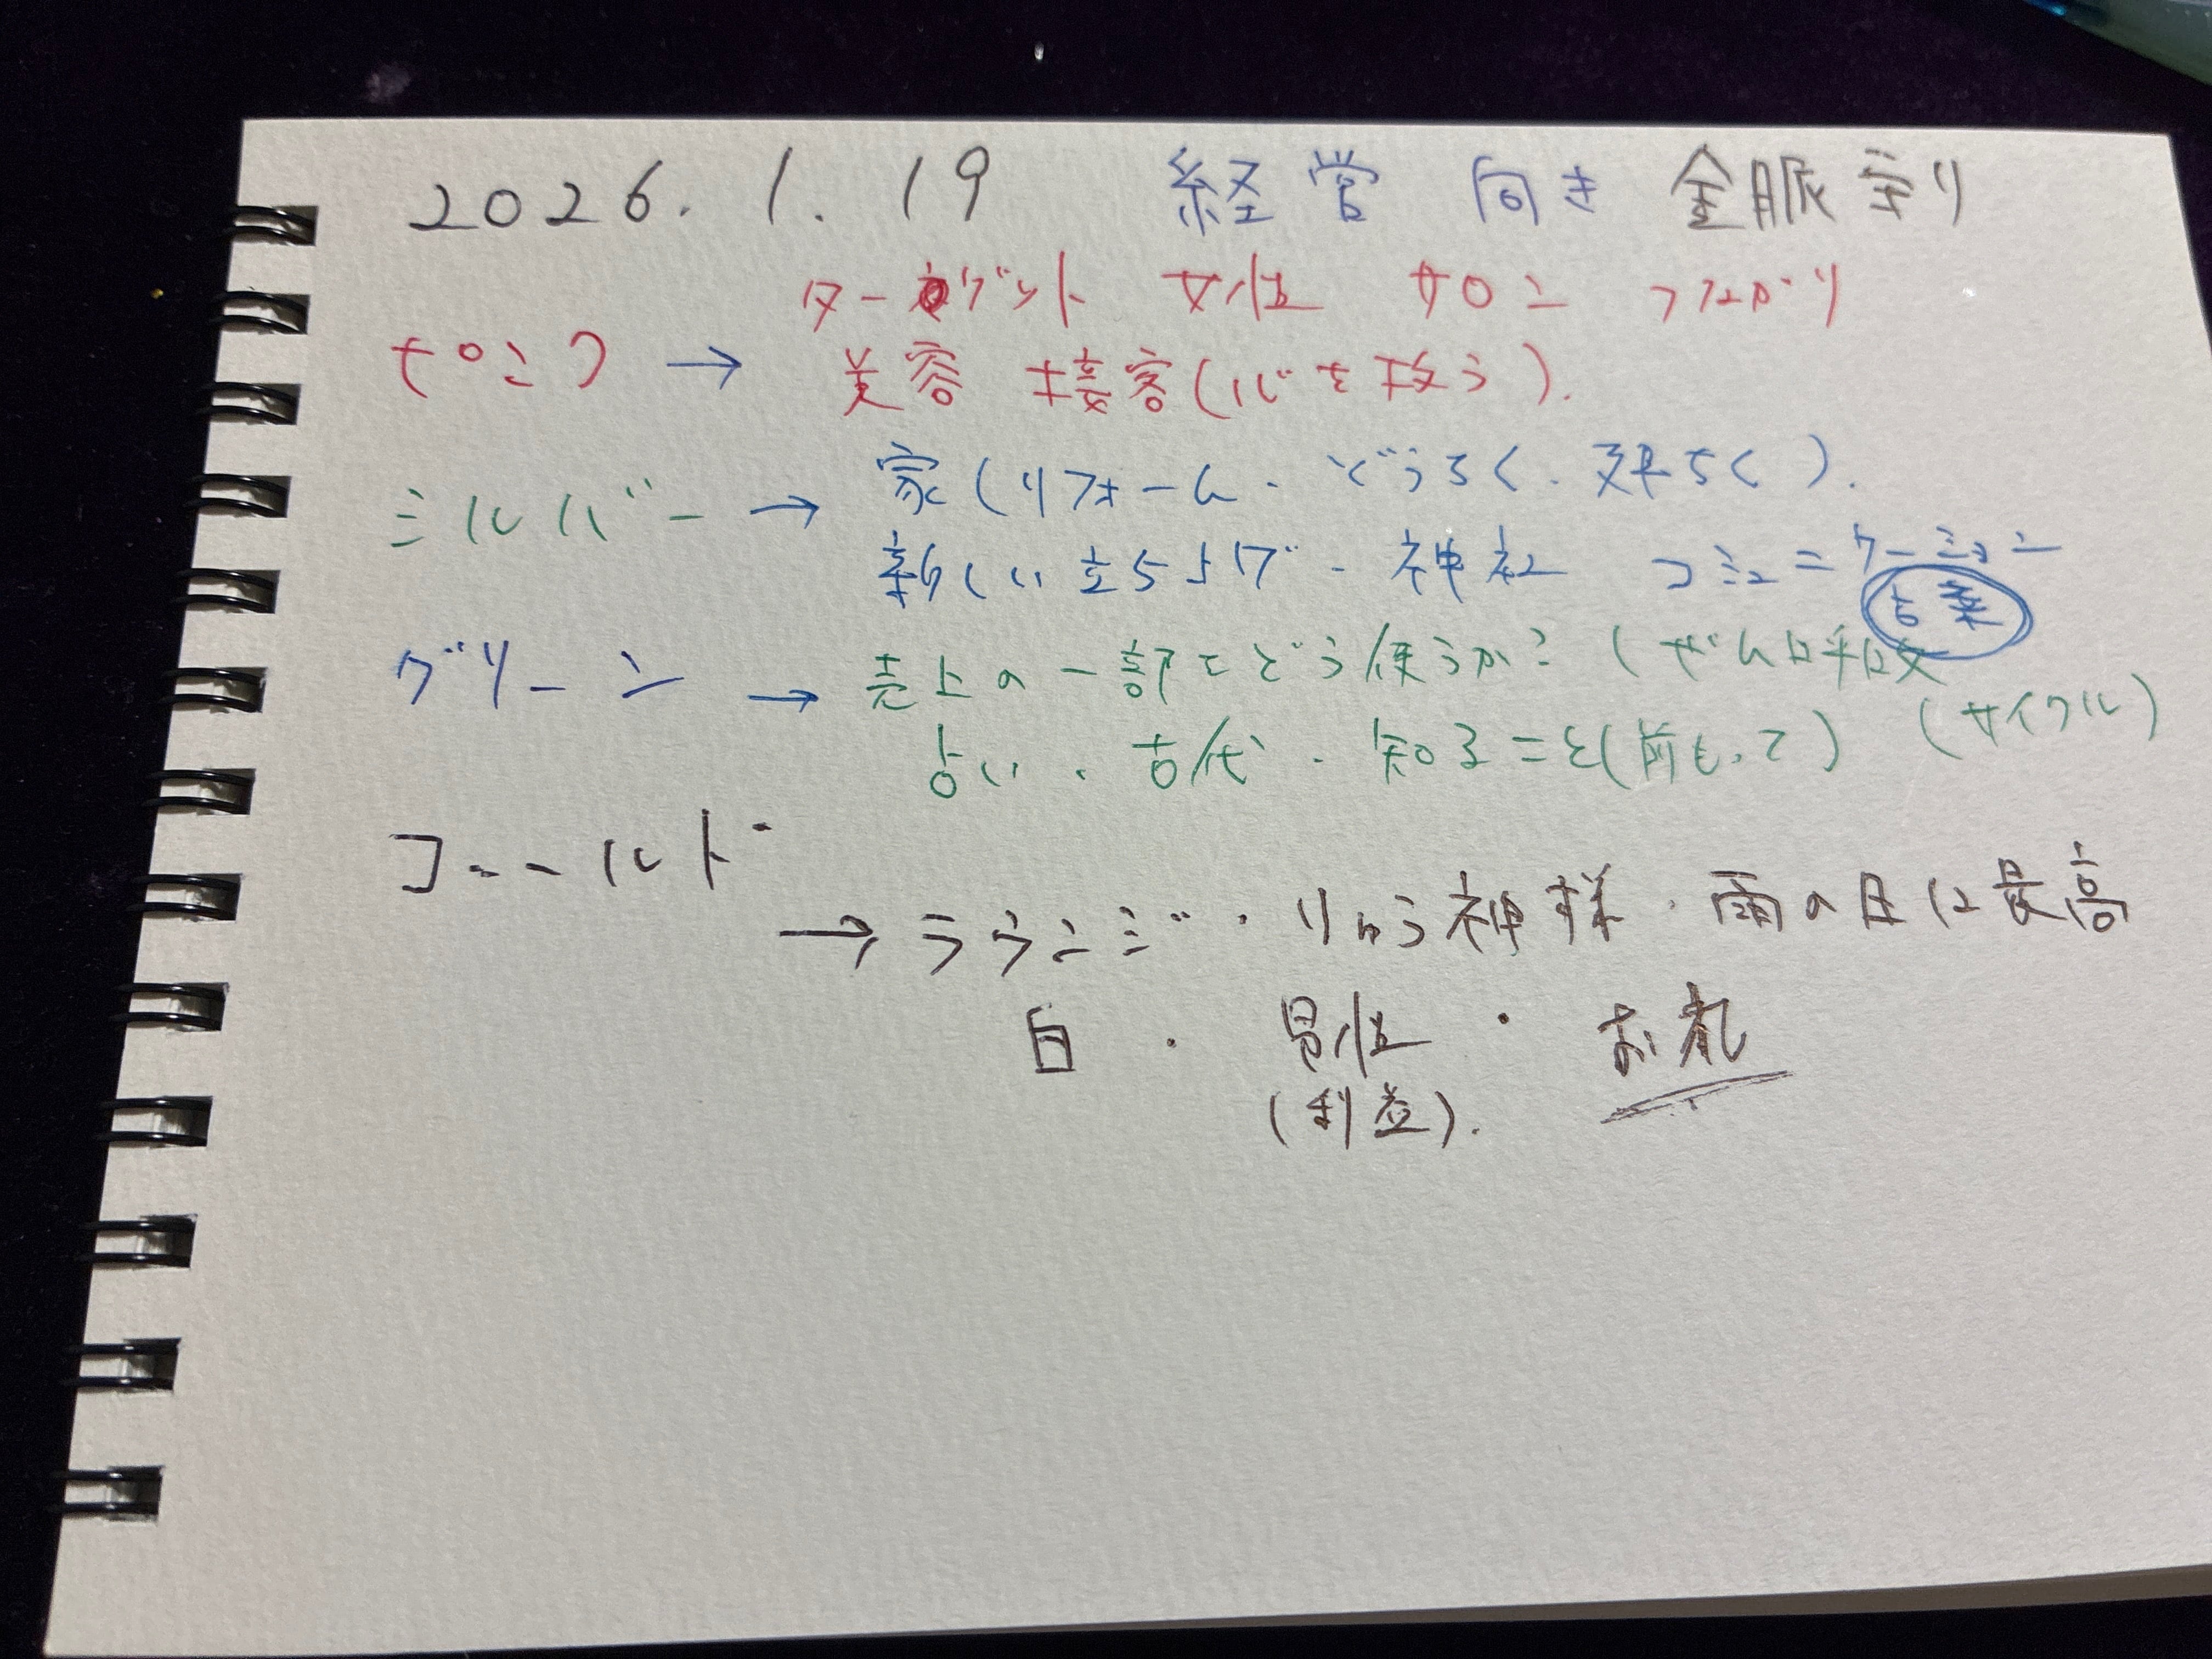 2026.1.19 経営 向き 金脈守り
ターゲット 女性 サロン つながり
ピンク → 美容 接客(心を扱う).
シルバー → 家(リフォーム・どうろく・建ちく).
新しい立ち上げ・神社 コミュニケーション
言葉
グリーン → 売上の一部をどう使うか?(
占い・古代・知ること(前もって) (サイクル)
ゴールド
→ ラウンジ・りゅう神様・雨の日に最高
白・男性・お札
(利益).